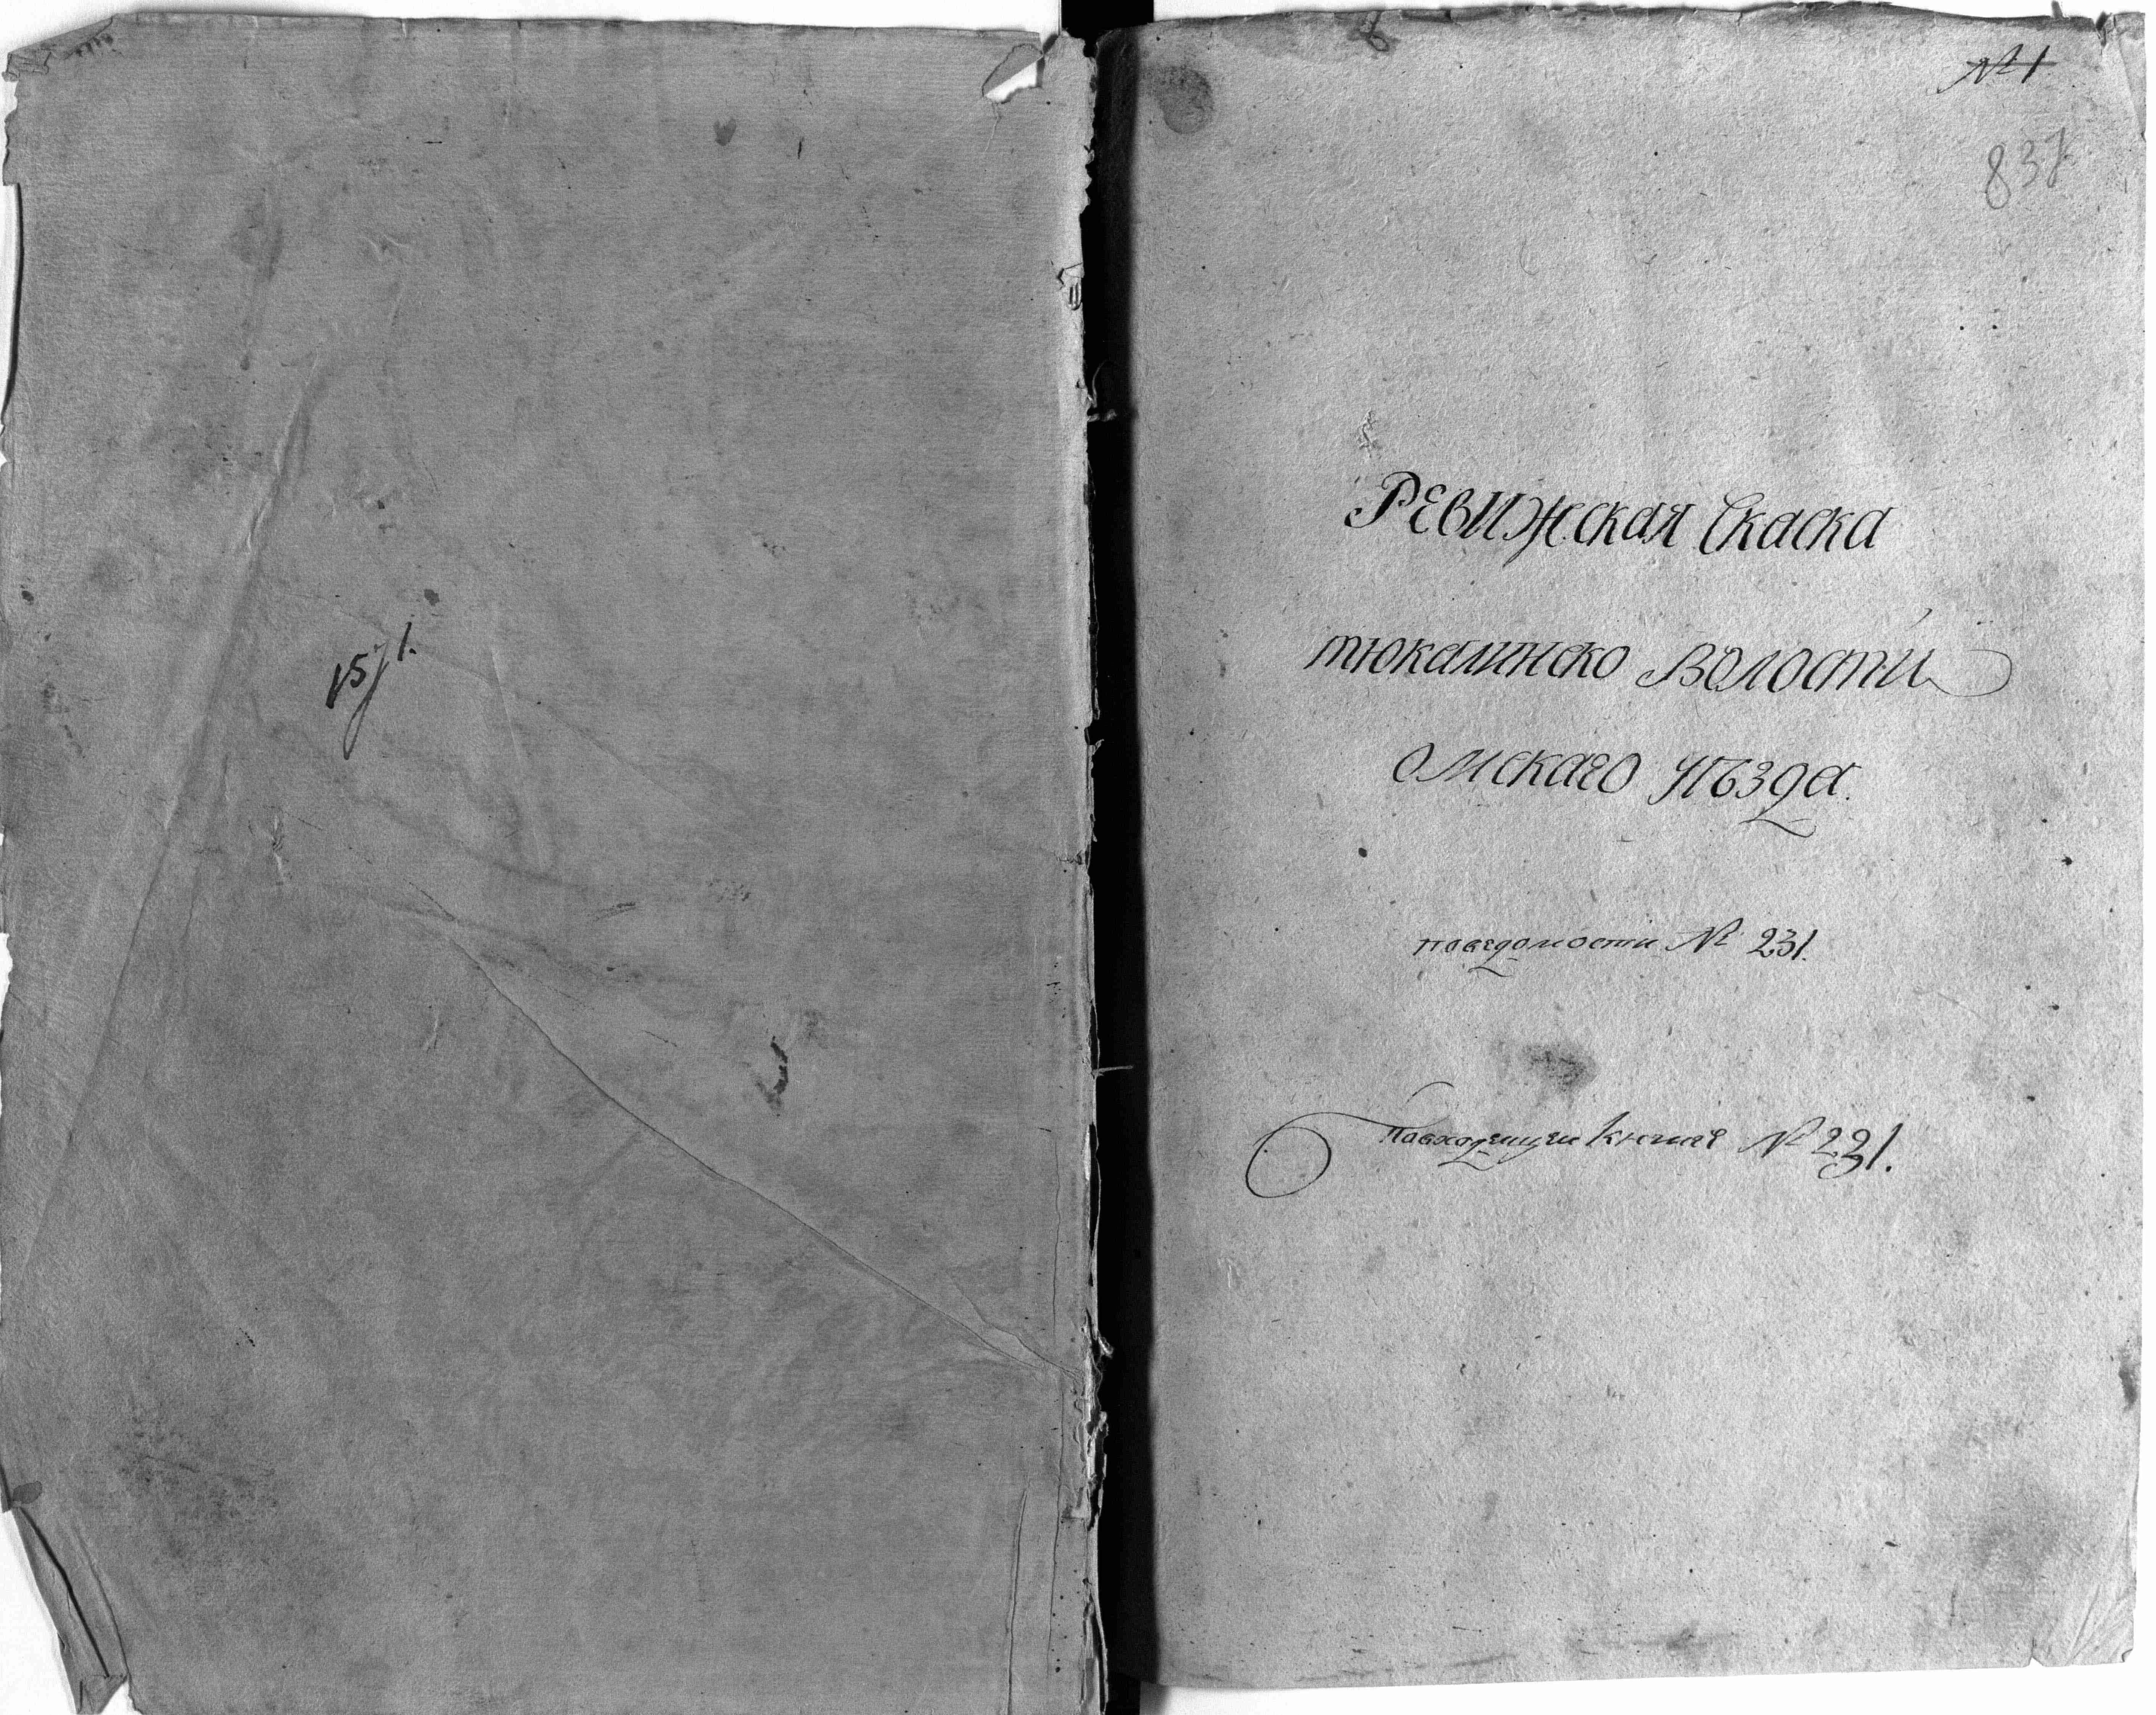 1571.
№ 1
837
Ревижская Скаска
тюкалинско Волости
омскаго уѣзда.
поведомости № 231.
Повходящеи книге № 231.